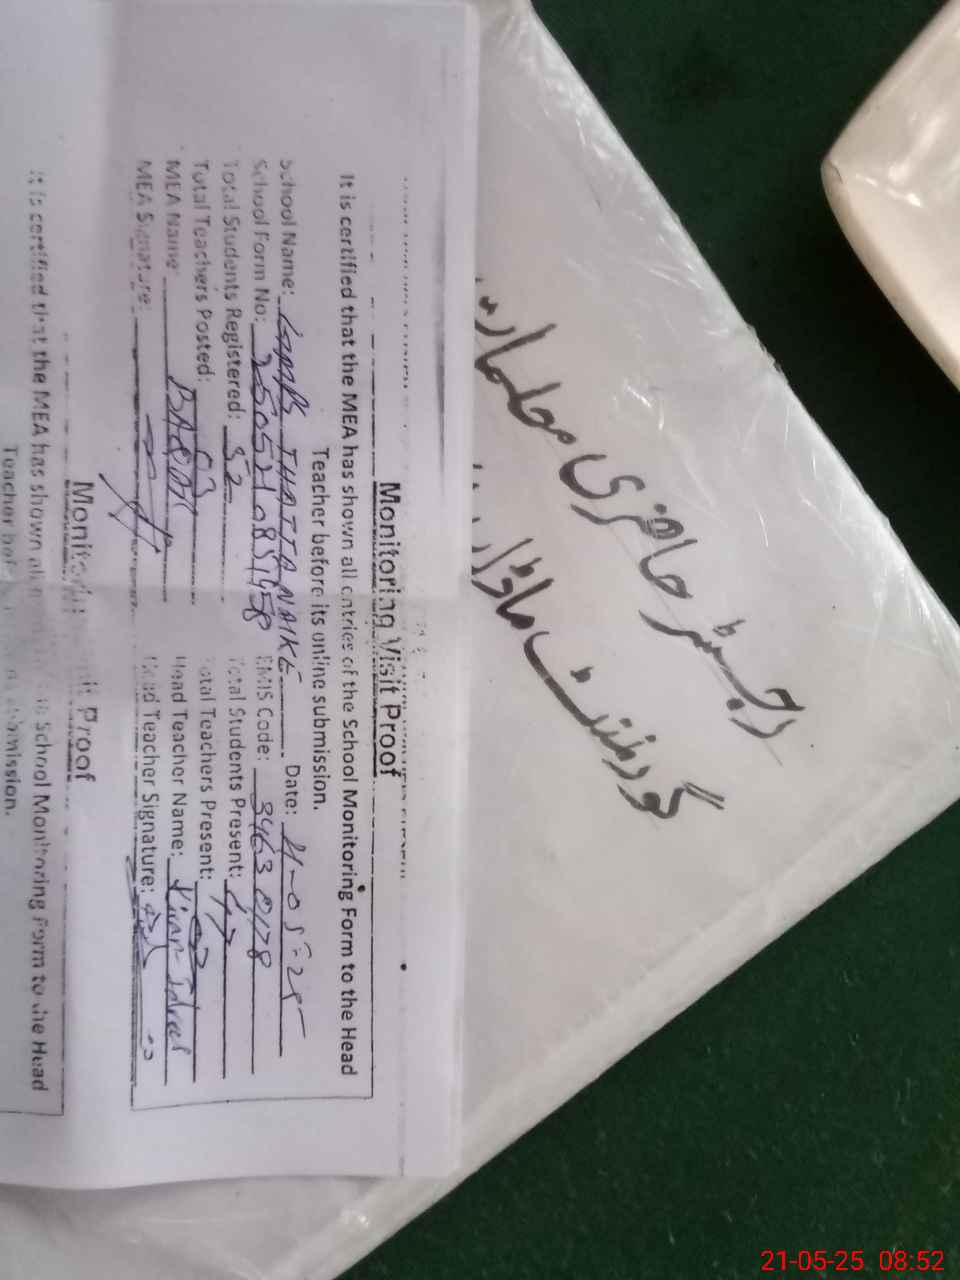 Monitoring Visit Proof
It is certified that the MEA has shown all entries of the School Monitoring Form to the Head
Teacher before its online submission.
School Name: GMPS THATTA NAIKE Date: 21-05-25
School Form No: EMIS Code:
Total Students Registered: 52 Total Students Present: 47
Total Teachers Posted: 03 Total Teachers Present: 03
MEA Name Head Teacher Name: Kiran
MEA Signature: Head Teacher Signature:
Monitoring Visit Proof
It is certified that the MEA has shown all School Monitoring Form to the Head
Teacher before submission.
رجسٹر حاضری معلمات
گورنمنٹ ماڈل
21-05-25 08:52